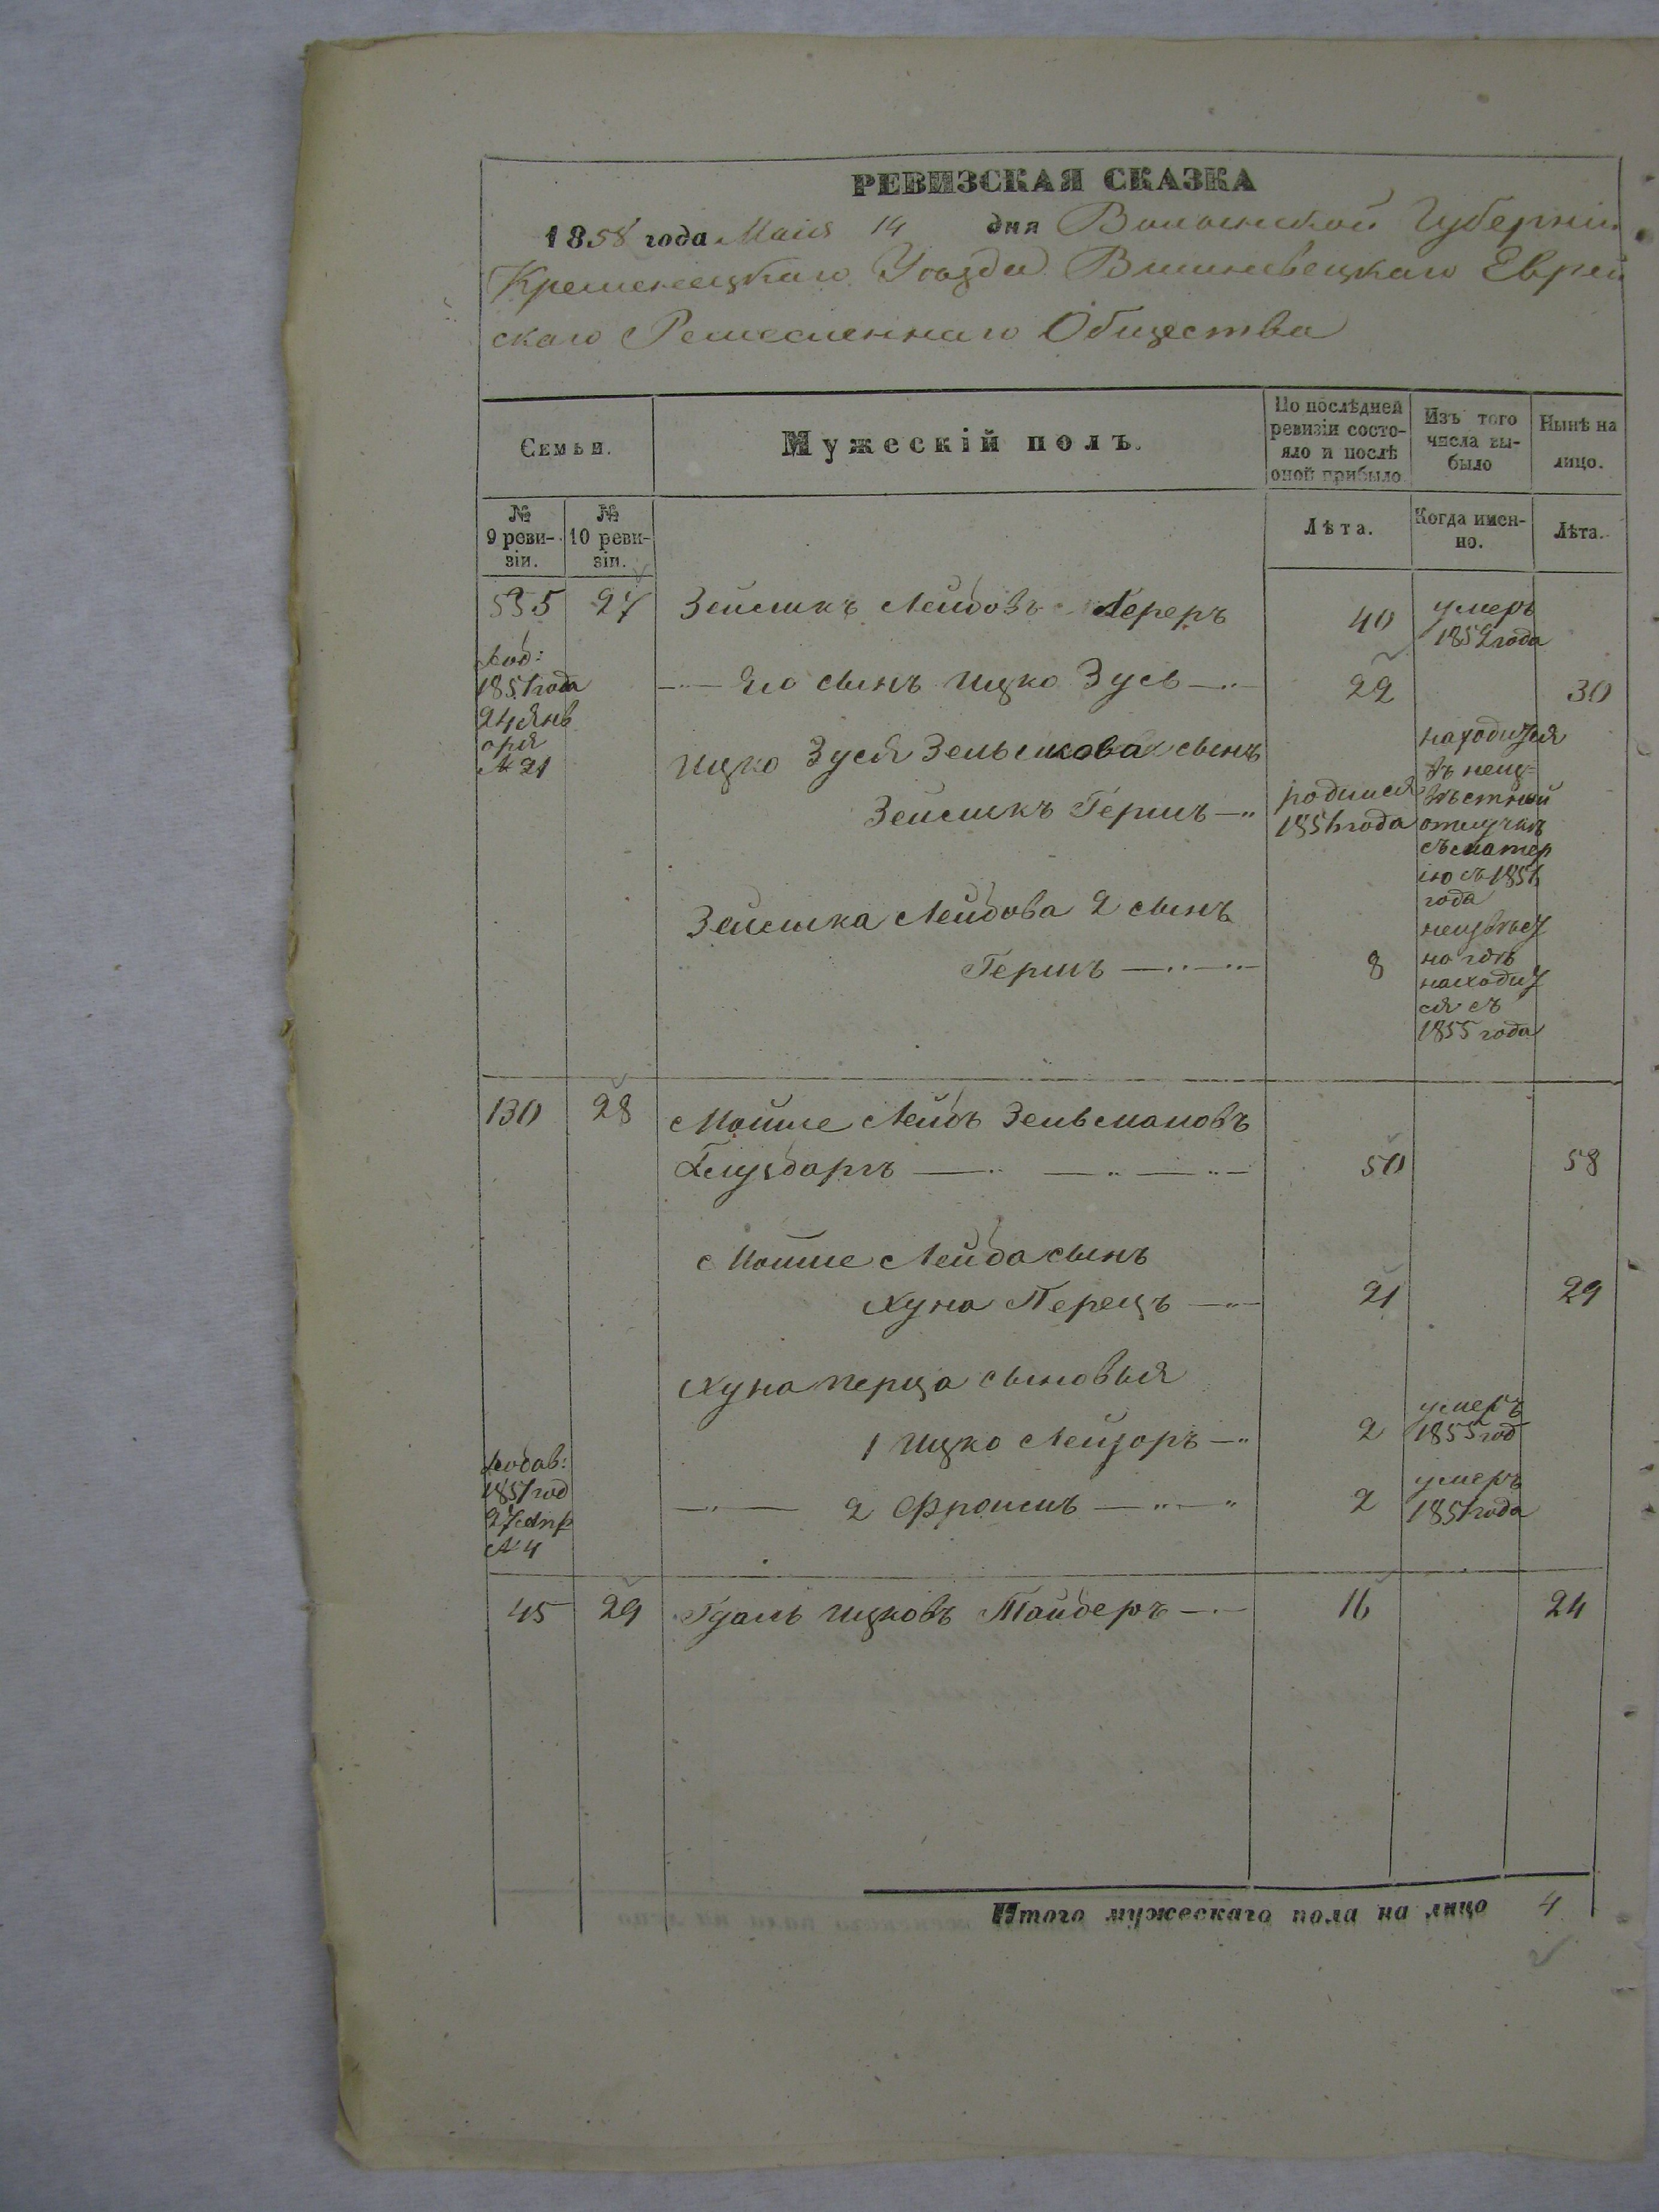 РЕВИЗСКАЯ СКАЗКА
1858 года Маія 14 дня Волынской Губерніи
Кременецкаго Уѣзда Вишневецкаго Еврей
скаго Ремесленнаго Общества
Семьи.
Мужескій полъ.
По послѣдней ревизіи состо-
яло и послѣ оной прибыло
Изъ того числа вы-
было
Нынѣ на лицо.
№ 9 реви-
зіи.
№ 10 реви-
зіи.
Лѣта.
Когда имен-
но.
Лѣта.
535 27 Зейликъ Лейбовъ Лереръ 40 умеръ
1852 года
Доб:
1851 года
24 Янв
аря
№ 21
Его сынъ Ицко Зусь 22 30
Ицко Зуся Зельикова сынъ
Зейликъ Гершъ
родился
1851 года
находится
въ неиз=
вѣстной
отлучкѣ
съ матер
ію съ 1851
года
Зейлика Лейбова 2 сынъ
Гершъ 8
неизвѣст
но гдѣ
находит
ся съ
1855 года
130 28 Мошше Лейбъ Зельмановъ
Глузбаргъ 50 58
Мошше Лейба сынъ
Хуна Перецъ 21 29
Хуна перца сыновья
1 Ицко Лейзоръ 2 умеръ
1855 год
Добав:
1851 год
27 Апр
№ 4
2 Фроимъ 2 умеръ
1851 года
45 29 Гдаль Ицковъ Тайберъ 16 24
Итого мужескаго пола на лицо 4